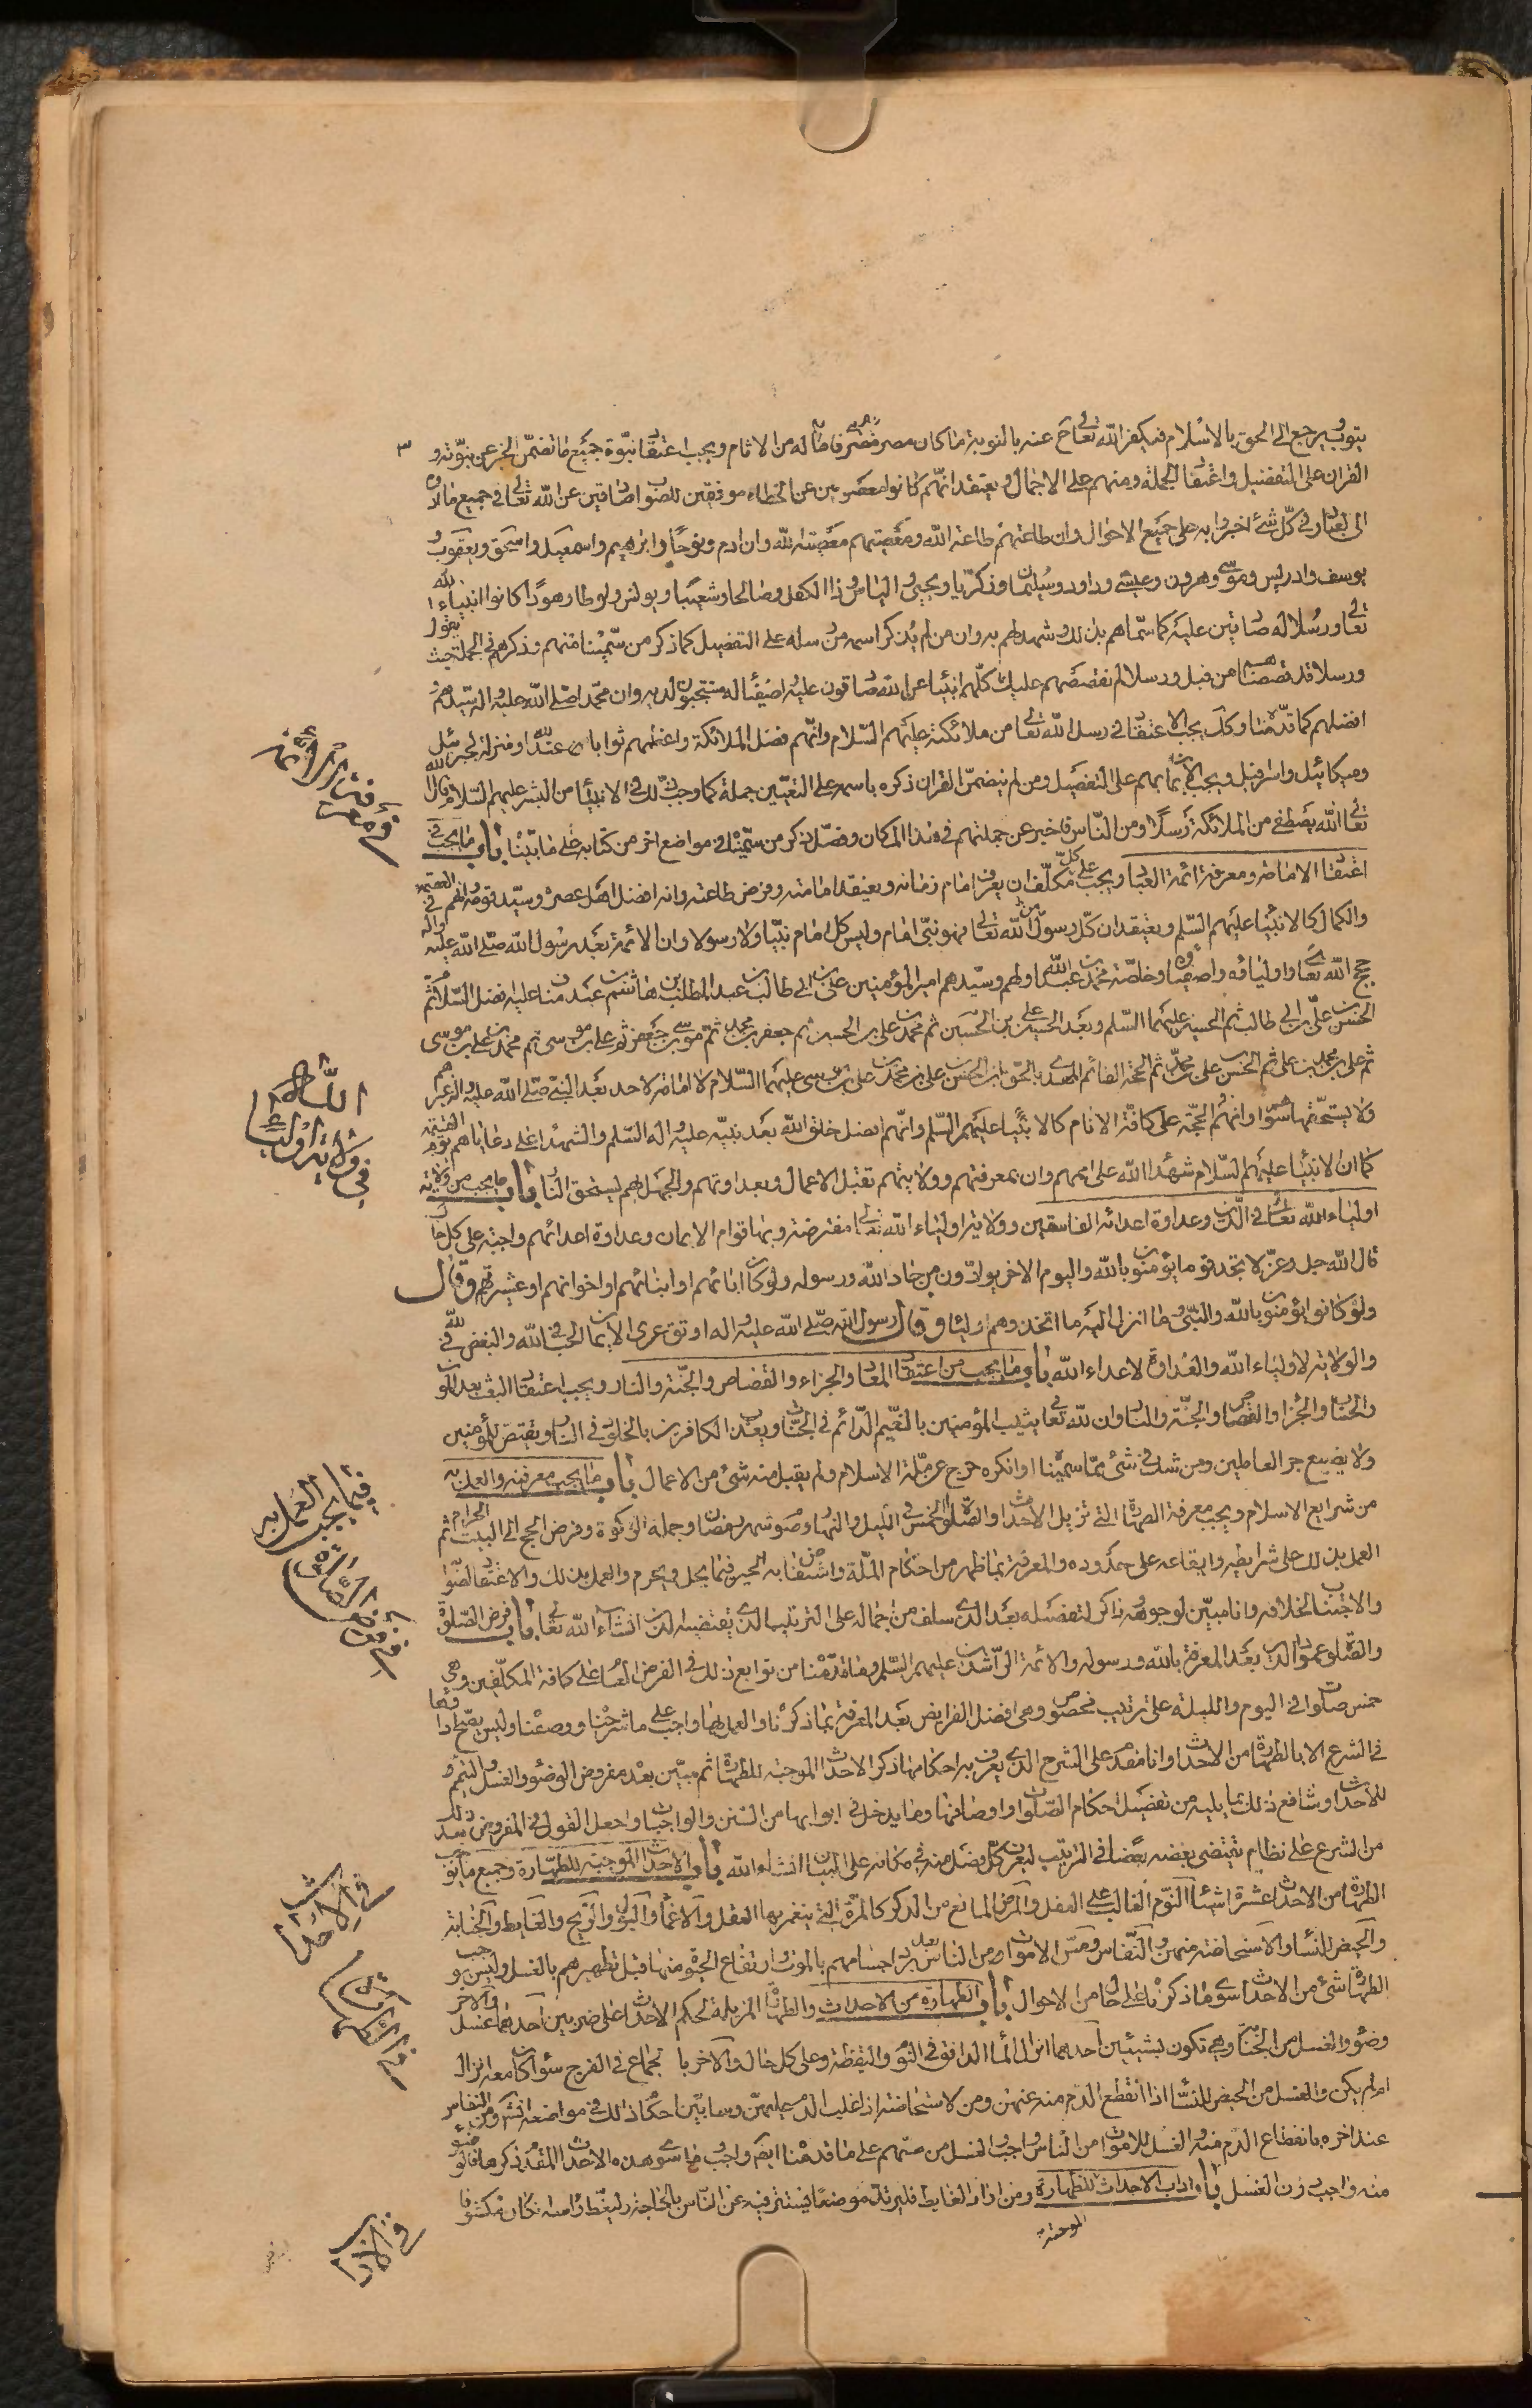 يتوب ويرجع الى الحق بالاسلام فيكفر الله تعالى عنه بالتوبة ما كان مصرا قبل من الاثام ويجب اعتقاد نبوة جميع ما تضمن الخبر عن نبوته و
القران على التفضيل واعتقاد الجملة ومنهم على الاجمال ويعتقد انهم كانوا معصومين عن الخطاء موفقين للصواب صادقين عن الله تعالى في جميع ما ادوه
الى العباد وفي كل شئ اخبروا به على جميع الاحوال وان طاعتهم طاعة الله ومعصيتهم معصية لله وان ادم ونوحا وابرهيم واسمعيل واسحق ويعقوب و
يوسف وادريس وموسى وهرون وعيسى وداود وسليمان وزكريا ويحيى والياس وذا الكفل وصالحا وشعيبا ويونس ولوطا وهودا كانوا انبياء الله
تعالى ورسلا له صادقين عليه كما سماهم بذلك وشهد لهم به وان من لم يذكر اسمه من رسله على التفصيل كما ذكر من سميناه منهم وذكرهم في الجملة حيث يقول
ورسلا قد قصصناهم من قبل ورسلا لم نقصصهم عليك كلهم انبياء عن الله صادقون عليه اصفياء له منتجبون لديه وان محمدا صلى الله عليه واله سيدهم و
افضلهم كما قدمنا وكذلك يجب الاعتقاد في رسل الله تعالى من ملائكته عليهم السلام وانهم افضل الملائكة واعظمهم ثوابا عند الله ومنزلة كجبرئيل
وميكائيل واسرافيل ويجب الايمان بهم على التفصيل ومن لم يتضمن القران ذكره باسمه على التعيين جملة كما وجب ذلك في الانبياء من البشر عليهم السلام قال الله
تعالى الله يصطفي من الملائكة رسلا ومن الناس فاخبر عن جملتهم في هذا المكان وفصل ذكر من سميناه في مواضع اخر من كتابه على ما بيناه باب ما يجب في
اعتقاد الامامة ومعرفة ائمة العباد ويجب على كل مكلف ان يعرف امام زمانه ويعتقد امامته وفرض طاعته وانه افضل اهل عصره وسيد قومه وانهم في العصمة
والكمال كالانبياء عليهم السلم ويعتقد ان كل رسول لله تعالى فهو نبي امام وليس كل امام نبيا ولا رسولا وان الائمة بعد رسول الله صلى الله عليه واله
حجج الله تعالى واوليائه واصفياؤه وخاصته محمد بن عبد الله اولهم وسيدهم امير المؤمنين علي بن ابي طالب بن عبد المطلب بن هاشم بن عبد مناف عليه افضل السلام ثم
الحسن بن علي بن ابي طالب ثم الحسين عليهما السلم وبعد الحسين علي بن الحسين ثم محمد بن علي بن الحسين ثم جعفر بن محمد ثم موسى بن جعفر ثم علي بن موسى ثم محمد بن علي بن موسى
ثم علي بن محمد بن علي ثم الحسن بن علي بن محمد ثم الحجة القائم المهدي بالحق بن الحسن بن علي بن محمد بن علي بن موسى عليهما السلام لا امامة لاحد بعد النبي صلى الله عليه واله غيرهم
ولا يستحقها سواهم وانهم الحجة على كافة الانام كالانبياء عليهم السلم وانهم افضل خلق الله بعد نبيه عليه واله السلم والشهداء على رعاياهم يوم القيمة
كما ان الانبياء عليهم السلام شهداء الله على اممهم وان بمعرفتهم وولايتهم تقبل الاعمال وبعداوتهم والجهل بهم يستحق النار باب ما يجب من ولاية
اولياء الله تعالى في الدين وعداوة اعدائه الفاسقين وولاية اولياء الله تعالى مفترضة وبها قوام الايمان وعداوة اعدائهم واجبة على كل حال
قال الله جل وعز لا تجد قوما يؤمنون بالله واليوم الاخر يوادون من حاد الله ورسوله ولو كانوا ابائهم او ابنائهم او اخوانهم او عشيرتهم وقال
ولو كانوا يؤمنون بالله والنبي وما انزل اليه ما اتخذوهم اولياء وقال رسول الله صلى الله عليه واله اوثق عرى الايمان الحب في الله والبغض في الله
والولاية لاولياء الله والعداوة لاعداء الله باب ما يجب من اعتقاد المعاد والجزاء والقصاص والجنة والنار ويجب اعتقاد البعث بعد الموت
والحساب والجزاء والقصاص والجنة والنار وان لله تعالى يثيب المؤمنين بالنعيم الدائم في الجنات ويعذب الكافرين بالخلود في النار ويقتص للمؤمنين
ولا يضيع جر العاملين ومن شك في شئ مما سميناه او انكره خرج عن ملة الاسلام ولم يقبل منه شئ من الاعمال باب ما يجب معرفته والعمل به
من شرايع الاسلام ويجب معرفة الطهارة التي تزيل الاحداث والصلوة الخمس في الليل والنهار وصوم شهر رمضان وجملة الزكوة وفرض الحج الى البيت الحرام ثم
العمل بذلك على شرايطه وايقاعه على حدوده والمعرفة بما ظهر من احكام الملة واستفاض به الخبر فيما يحل ويحرم والعمل بذلك والاعتقاد لصوابه
والاجتناب لخلافه وانا مبين لوجوهه ذاكر لتفصيله بعد الذي سلف من اجماله على الترتيب الذي يقتضيه الدين انشاء الله تعالى باب فرض الصلوة
والصلوة عمود الدين بعد المعرفة بالله ورسوله والائمة الراشدين عليهم السلم وما قدمنا من توابع ذلك في الفرض العام على كافة المكلفين وهي
خمس صلوات في اليوم والليلة على ترتيب مخصوص وهي افضل الفرايض بعد المعرفة بما ذكرناه والعمل بها واجب على ما شرحناه ووصفناه وليس يصح اداؤها
في الشرع الا بالطهارة من الاحداث وانا مقدم على الشرح الذي يعرف به احكامها ذكر الاحداث الموجبة للطهارة ثم مبين بعده مفروض الوضوء والغسل والتيمم و
للاحداث وشافع ذلك بما يليه من تفصيل احكام الصلوات واوصافها وما يدخل في ابوابها من السنن والواجبات واجعل القول في المفروض بعد ذلك
من الشرع على نظام يقتضي بعضه بعضا في الترتيب ليعرف كل فصل منه في مكانه على البيان انشاء الله باب الاحداث الموجبة للطهارة وجميع ما يوجب
الطهارة من الاحداث عشرة اشياء النوم الغالب على العقل والمرض المانع من الذكر كالمرة التي ينغمر بها العقل والاغماء والبول والريح والغايط والجنابة
والحيض للنساء والاستحاضة منهن والنفاس ومس الاموات من الناس بعد برد اجسامهم بالموت وارتفاع الحيوة منها قبل تطهيرهم بالغسل وليس يوجب
الطهارة شئ من الاحداث سوى ما ذكرناه على حال من الاحوال باب الطهارة من الاحداث والطهارة المزيلة لحكم الاحداث على ضربين احدهما غسل والاخر
وضوء والغسل من الجنابة وهي تكون بشيئين احدهما انزال الماء الدافق في النوم واليقظة وعلى كل حال والاخر بالجماع في الفرج سواء كان معه انزال
او لم يكن والغسل من الحيض للنساء اذا انقطع الدم منه عنهن ومن الاستحاضة اذا غلب الدم عليهن وسابين احكام ذلك في مواضعه انشاء ومن النفاس
عند اخره بانقطاع الدم منه والغسل للاموات من الناس واجب والغسل من مسهم على ما قدمناه ايضا واجب وما سوى هذه الاحداث المقدم ذكرها فالوضوء
منه واجب دون الغسل باب اداب الاحداث للطهارة ومن اراد الغايط فليرتد موضعا يستتر فيه عن الناس بالحاجة وليغط راسه ان كان مكشوفا
الموجبة
٣
في معرفة الائمة
في ولاية اولياء الله
فيما يجب العمل به
في فرض الصلوة
في الاحداث
في الطهارة
في الاداب